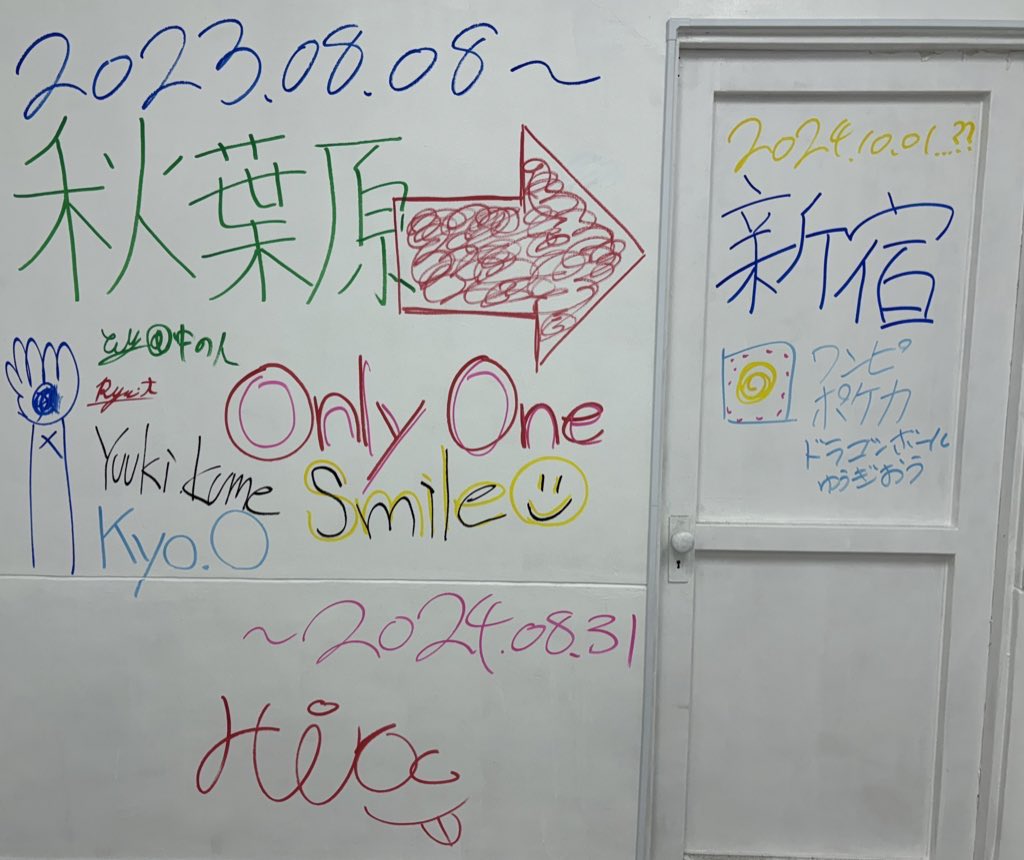 2023.08.08~
秋葉原
の人
Ryuit
Only One
Yuuki kume
Smile
Kyo.O
~2024.08.31
Hiro
2024.10.01...??
新宿
ワンピ
ポケカ
ドラゴンボール
ゆうぎおう